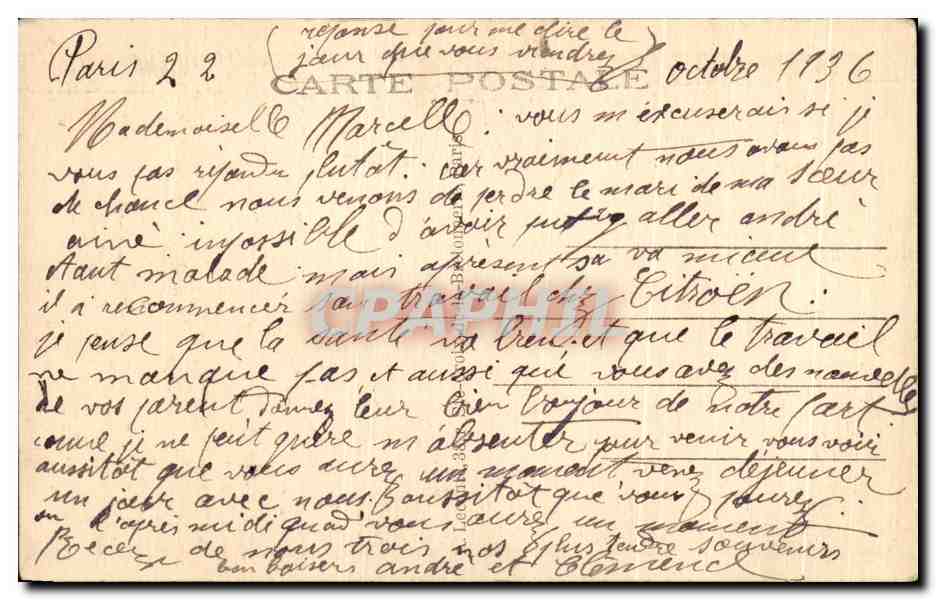 (réponse pour me dire le
jour que vous viendrez)
CARTE POSTALE
Paris 22 octobre 1936
Mademoiselle Marcelle : vous m'excuserais si je
vous pas répondu plutôt. car vraiement nous avons pas
de chance nous venons de perdre le mari de ma sœur
ainé impossible d'avoir put y aller andré
étant malade mais apresent sa va mieux
il a recommencer son travail chez Citroën.
je pense que la santé va bien et que le travail
ne manque pas et aussi que vous avez des nouvelles
de vos parent donnez leur bien bonjour de notre part
comme je ne peut guère m'absenter pour venir vous voir
aussitôt que vous aurez un moment venez déjeuner
un jour avec nous aussitôt que vous pourez
ou l'après midi quad vous aurez un moment
Recevez de nous trois nos plus tendre souvenirs
bon baisers andré et Clémence
CPAPHIL